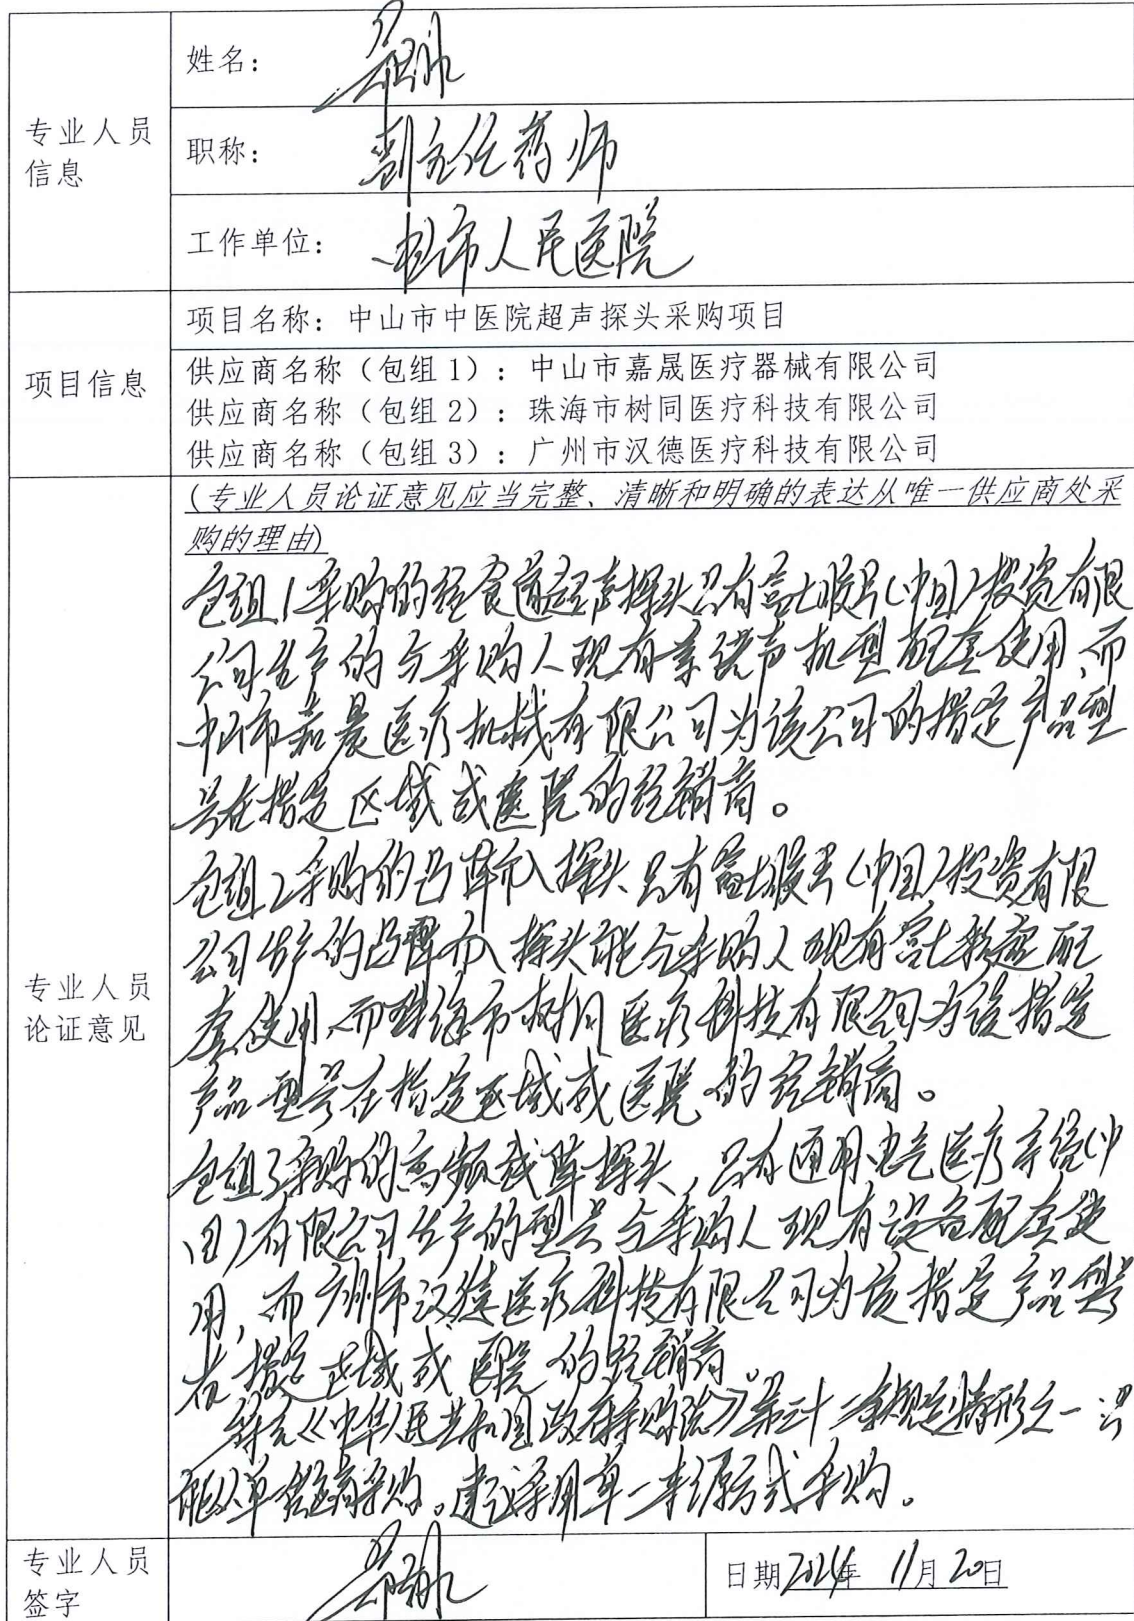 专业人员
信息
姓名：
职称：副主任药师
工作单位：中山市人民医院
项目信息
项目名称：中山市中医院超声探头采购项目
供应商名称（包组1）：中山市嘉晟医疗器械有限公司
供应商名称（包组2）：珠海市树同医疗科技有限公司
供应商名称（包组3）：广州市汉德医疗科技有限公司
专业人员
论证意见
(专业人员论证意见应当完整、清晰和明确的表达从唯一供应商处采
购的理由)
包组1采购的经食道超声探头只有富士胶片(中国)投资有限
公司生产的与采购人现有超声机型配套使用,而
中山市嘉晟医疗机械有限公司为该公司的指定产品型
号在指定区域或医院的经销商。
包组2采购的凸阵介入探头只有富士胶片(中国)投资有限
公司生产的凸阵介入探头能与采购人现有富士 配
套使用,而珠海市树同医疗科技有限公司为该指定
产品型号在指定区域或医院的经销商。
包组3采购的高频线阵探头,只有通用电气医疗系统(中
国)有限公司生产的型号与采购人现有设备配套使
用,而广州市汉德医疗科技有限公司为该指定产品型号
在指定区域或医院的经销商。
符合《中华人民共和国政府采购法》第三十一条规定情形之一:只
能从单一供应商采购。建议采用单一来源方式采购。
专业人员
签字
日期2024年 11月20日